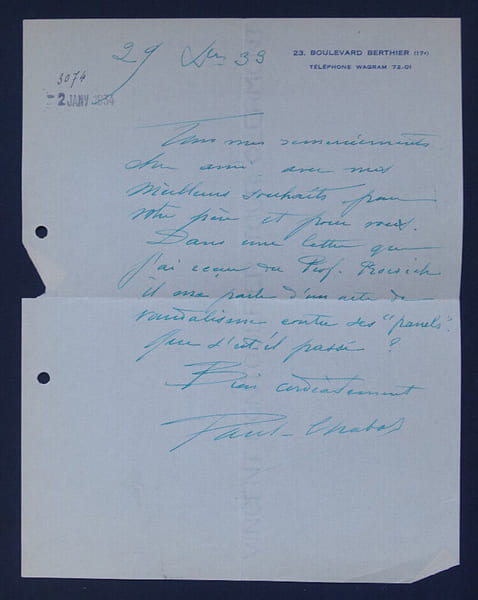 29 Dec 33
23. BOULEVARD BERTHIER (17e)
TÉLÉPHONE WAGRAM 72-01
3074
- 2 JANV 1934
Tous mes remerciements
cher ami avec mes
meilleurs souhaits pour
votre père et pour vous.
Dans une lettre que
j'ai reçue du Prof.
il me parle d'un acte de
vandalisme contre ses "panels".
Que s'est-il passé ?
Bien cordialement
Paul-Chabas